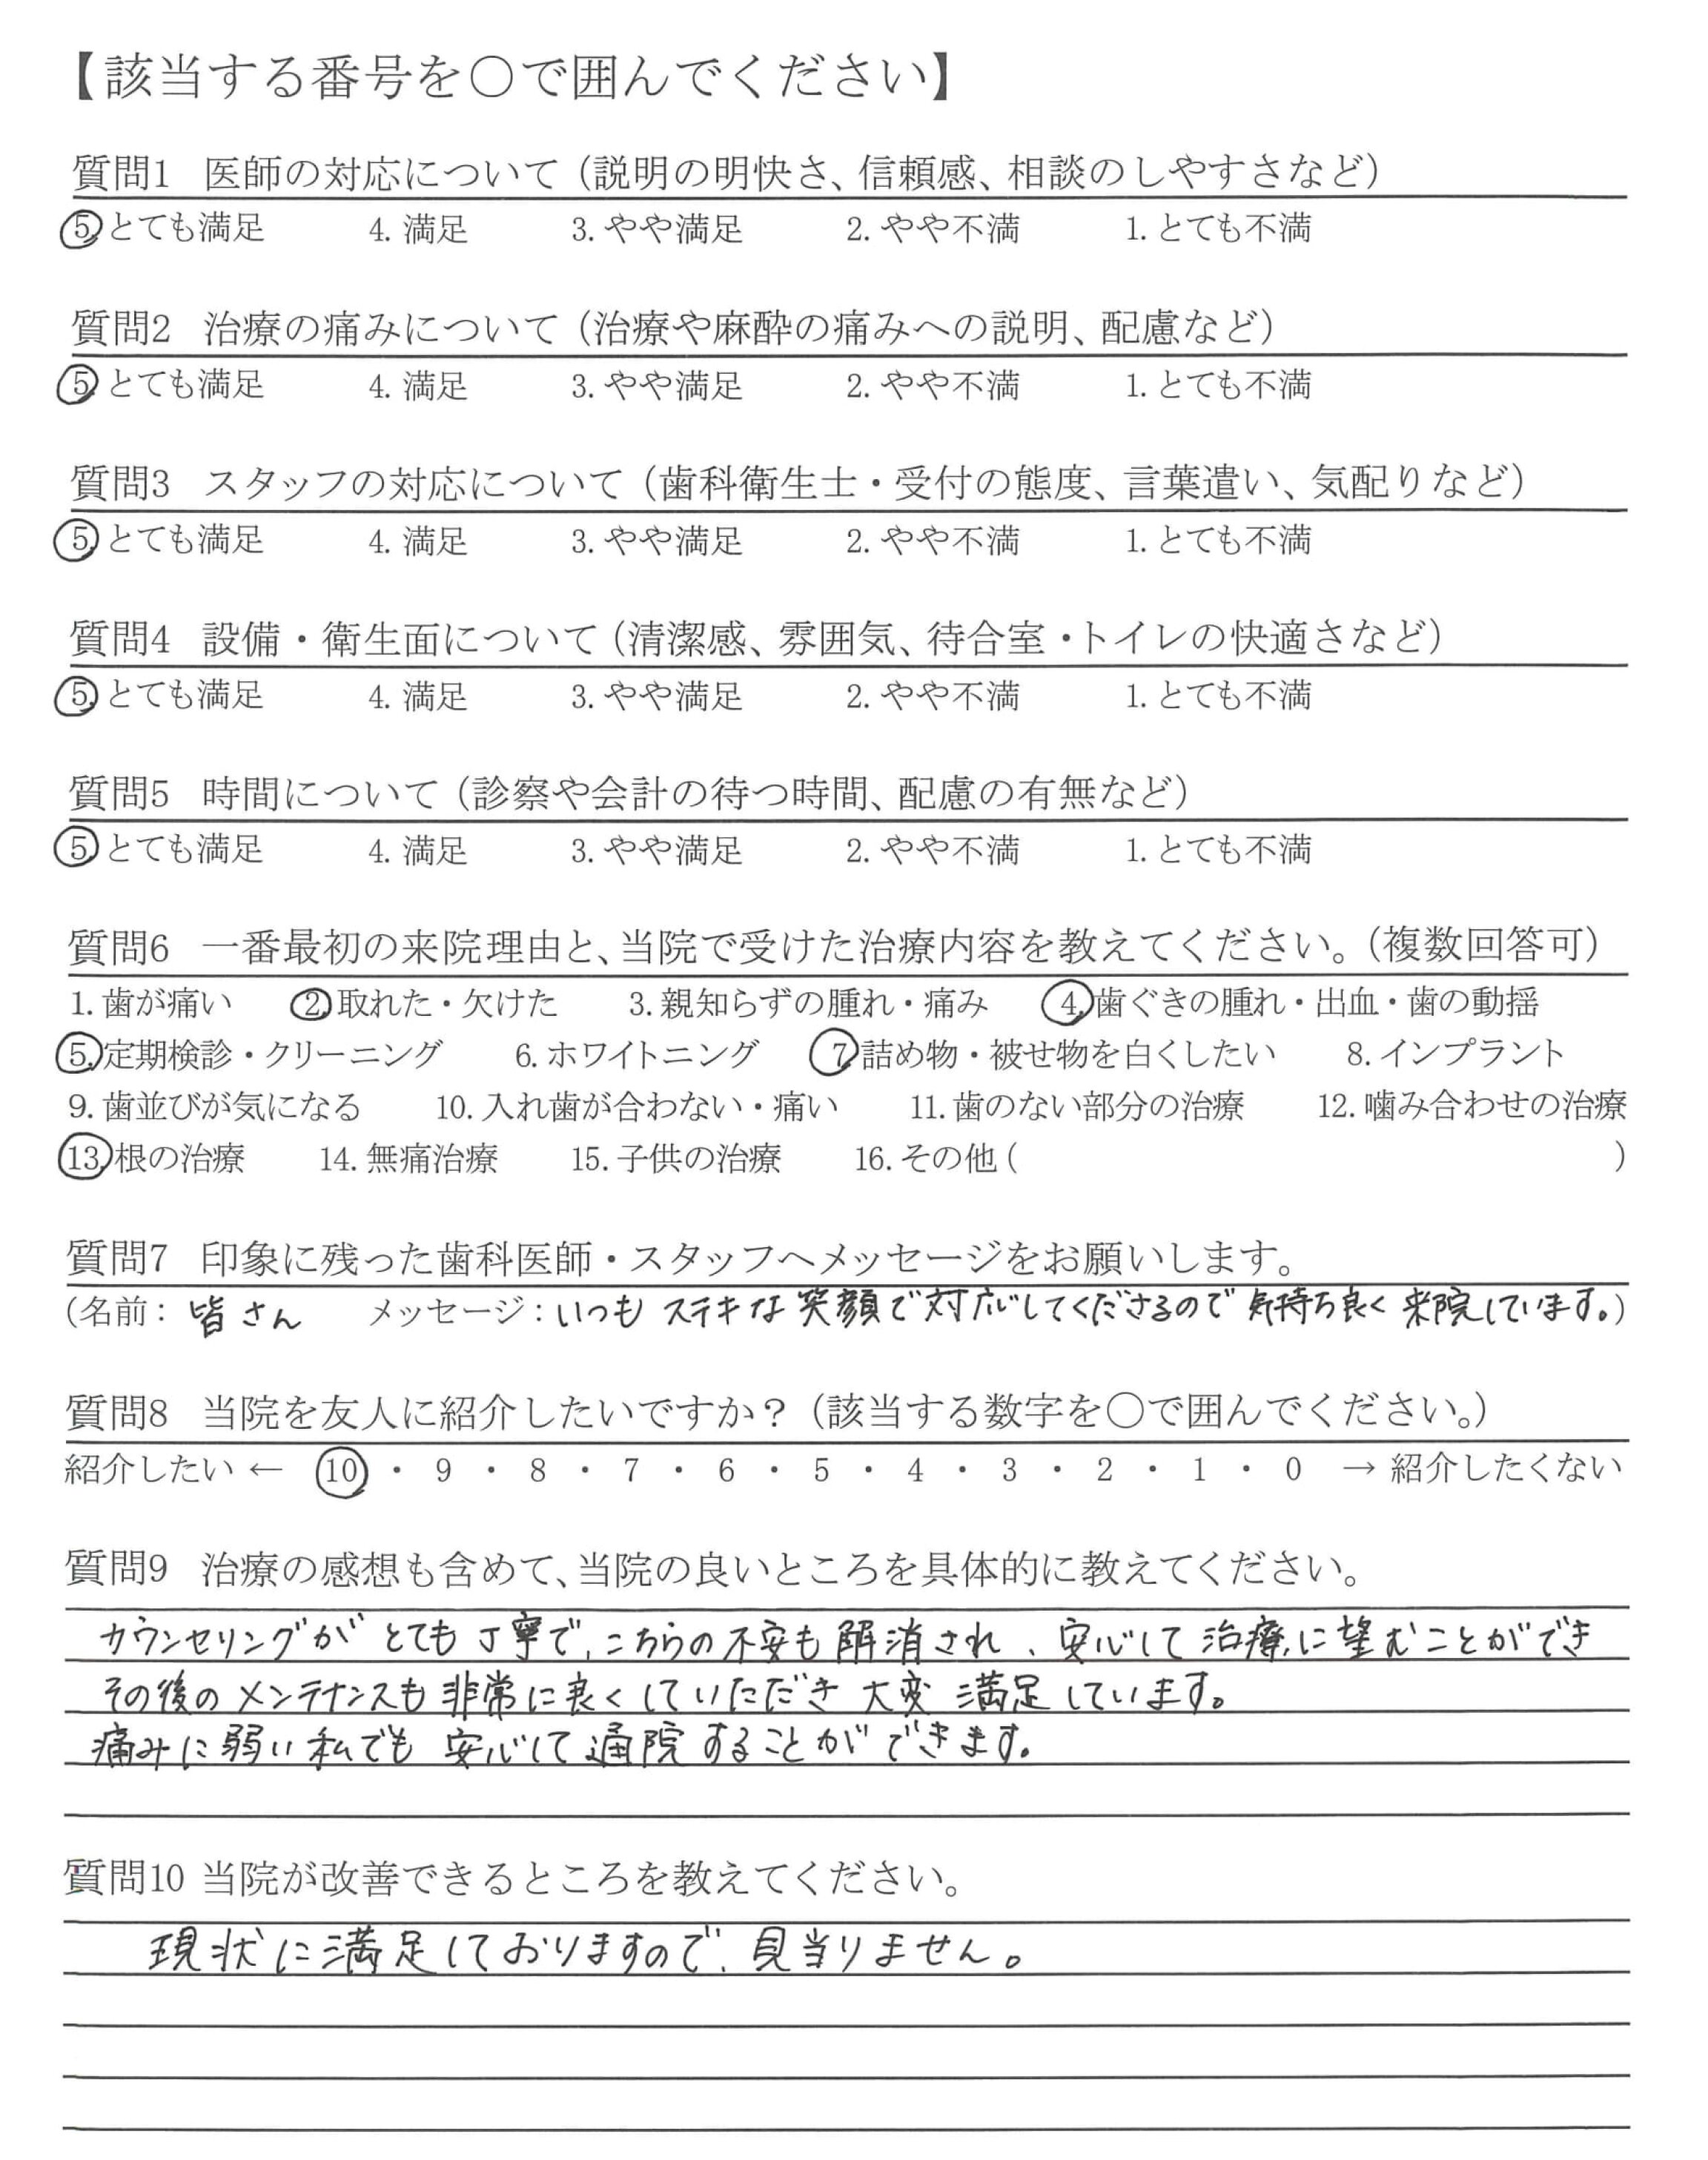 【該当する番号を○で囲んでください】
質問1 医師の対応について（説明の明快さ、信頼感、相談のしやすさなど）
5. とても満足 4. 満足 3. やや満足 2. やや不満 1. とても不満
質問2 治療の痛みについて（治療や麻酔の痛みへの説明、配慮など）
5. とても満足 4. 満足 3. やや満足 2. やや不満 1. とても不満
質問3 スタッフの対応について（歯科衛生士・受付の態度、言葉遣い、気配りなど）
5. とても満足 4. 満足 3. やや満足 2. やや不満 1. とても不満
質問4 設備・衛生面について（清潔感、雰囲気、待合室・トイレの快適さなど）
5. とても満足 4. 満足 3. やや満足 2. やや不満 1. とても不満
質問5 時間について（診察や会計の待つ時間、配慮の有無など）
5. とても満足 4. 満足 3. やや満足 2. やや不満 1. とても不満
質問6 一番最初の来院理由と、当院で受けた治療内容を教えてください。（複数回答可）
1. 歯が痛い 2. 取れた・欠けた 3. 親知らずの腫れ・痛み 4. 歯ぐきの腫れ・出血・歯の動揺
5. 定期検診・クリーニング 6. ホワイトニング 7. 詰め物・被せ物を白くしたい 8. インプラント
9. 歯並びが気になる 10. 入れ歯が合わない・痛い 11. 歯のない部分の治療 12. 噛み合わせの治療
13. 根の治療 14. 無痛治療 15. 子供の治療 16. その他（ ）
質問7 印象に残った歯科医師・スタッフへメッセージをお願いします。
（名前：皆さん メッセージ：いつもステキな笑顔で対応してくださるので気持ち良く来院しています。）
質問8 当院を友人に紹介したいですか？（該当する数字を○で囲んでください。）
紹介したい ← 10 ・ 9 ・ 8 ・ 7 ・ 6 ・ 5 ・ 4 ・ 3 ・ 2 ・ 1 ・ 0 → 紹介したくない
質問9 治療の感想も含めて、当院の良いところを具体的に教えてください。
カウンセリングがとても丁寧で、こちらの不安も解消され、安心して治療に望むことができ
その後のメンテナンスも非常に良くしていただき大変満足しています。
痛みに弱い私でも安心して通院することができます。
質問10 当院が改善できるところを教えてください。
現状に満足しておりますので、見当りません。